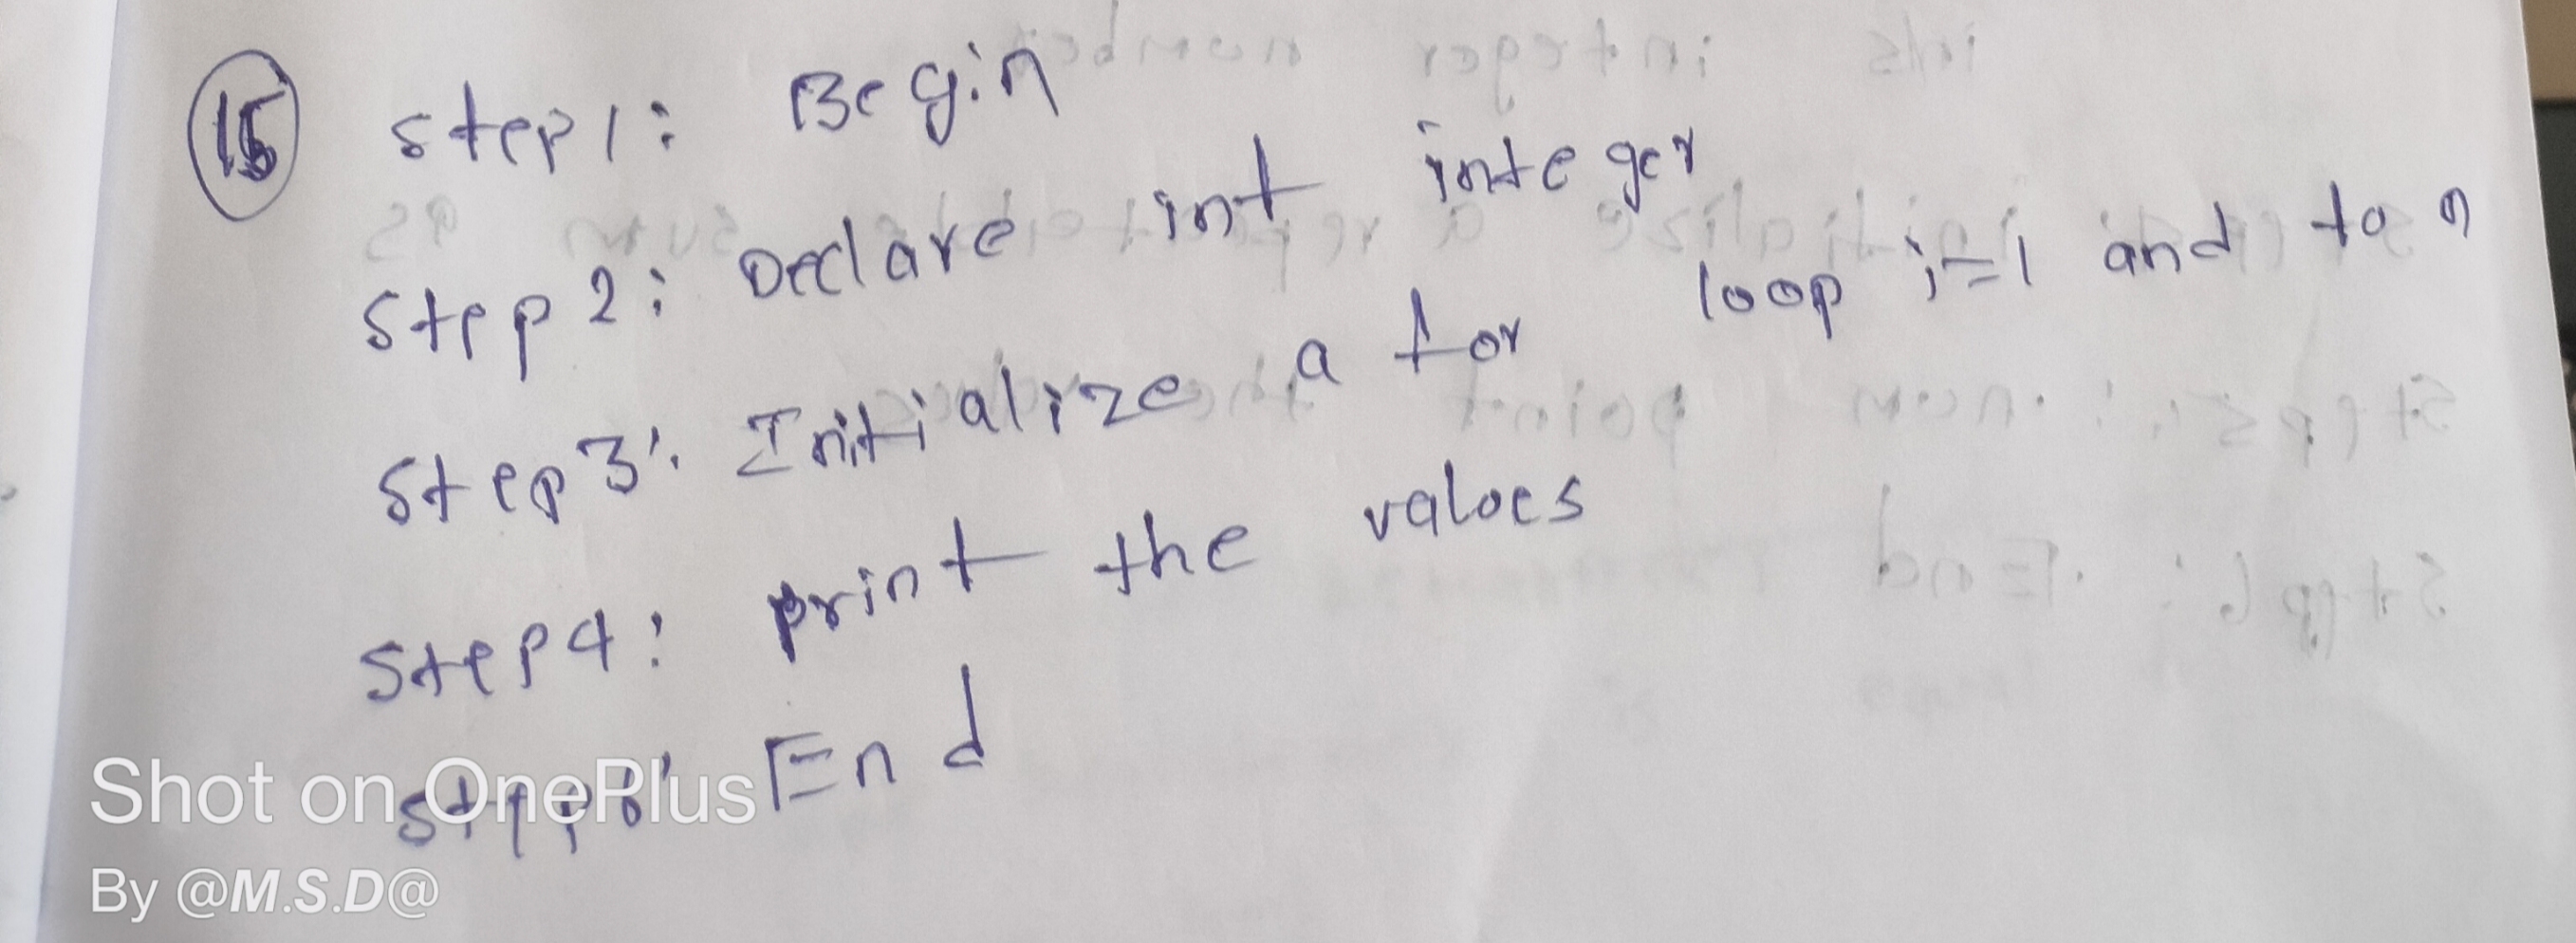 15 Step1: Begin
Step 2: Declare int integer
Step3: Initialize a for loop i=1 and to n
Step4: print the values
Step End
Shot on OnePlus
By @M.S.D@